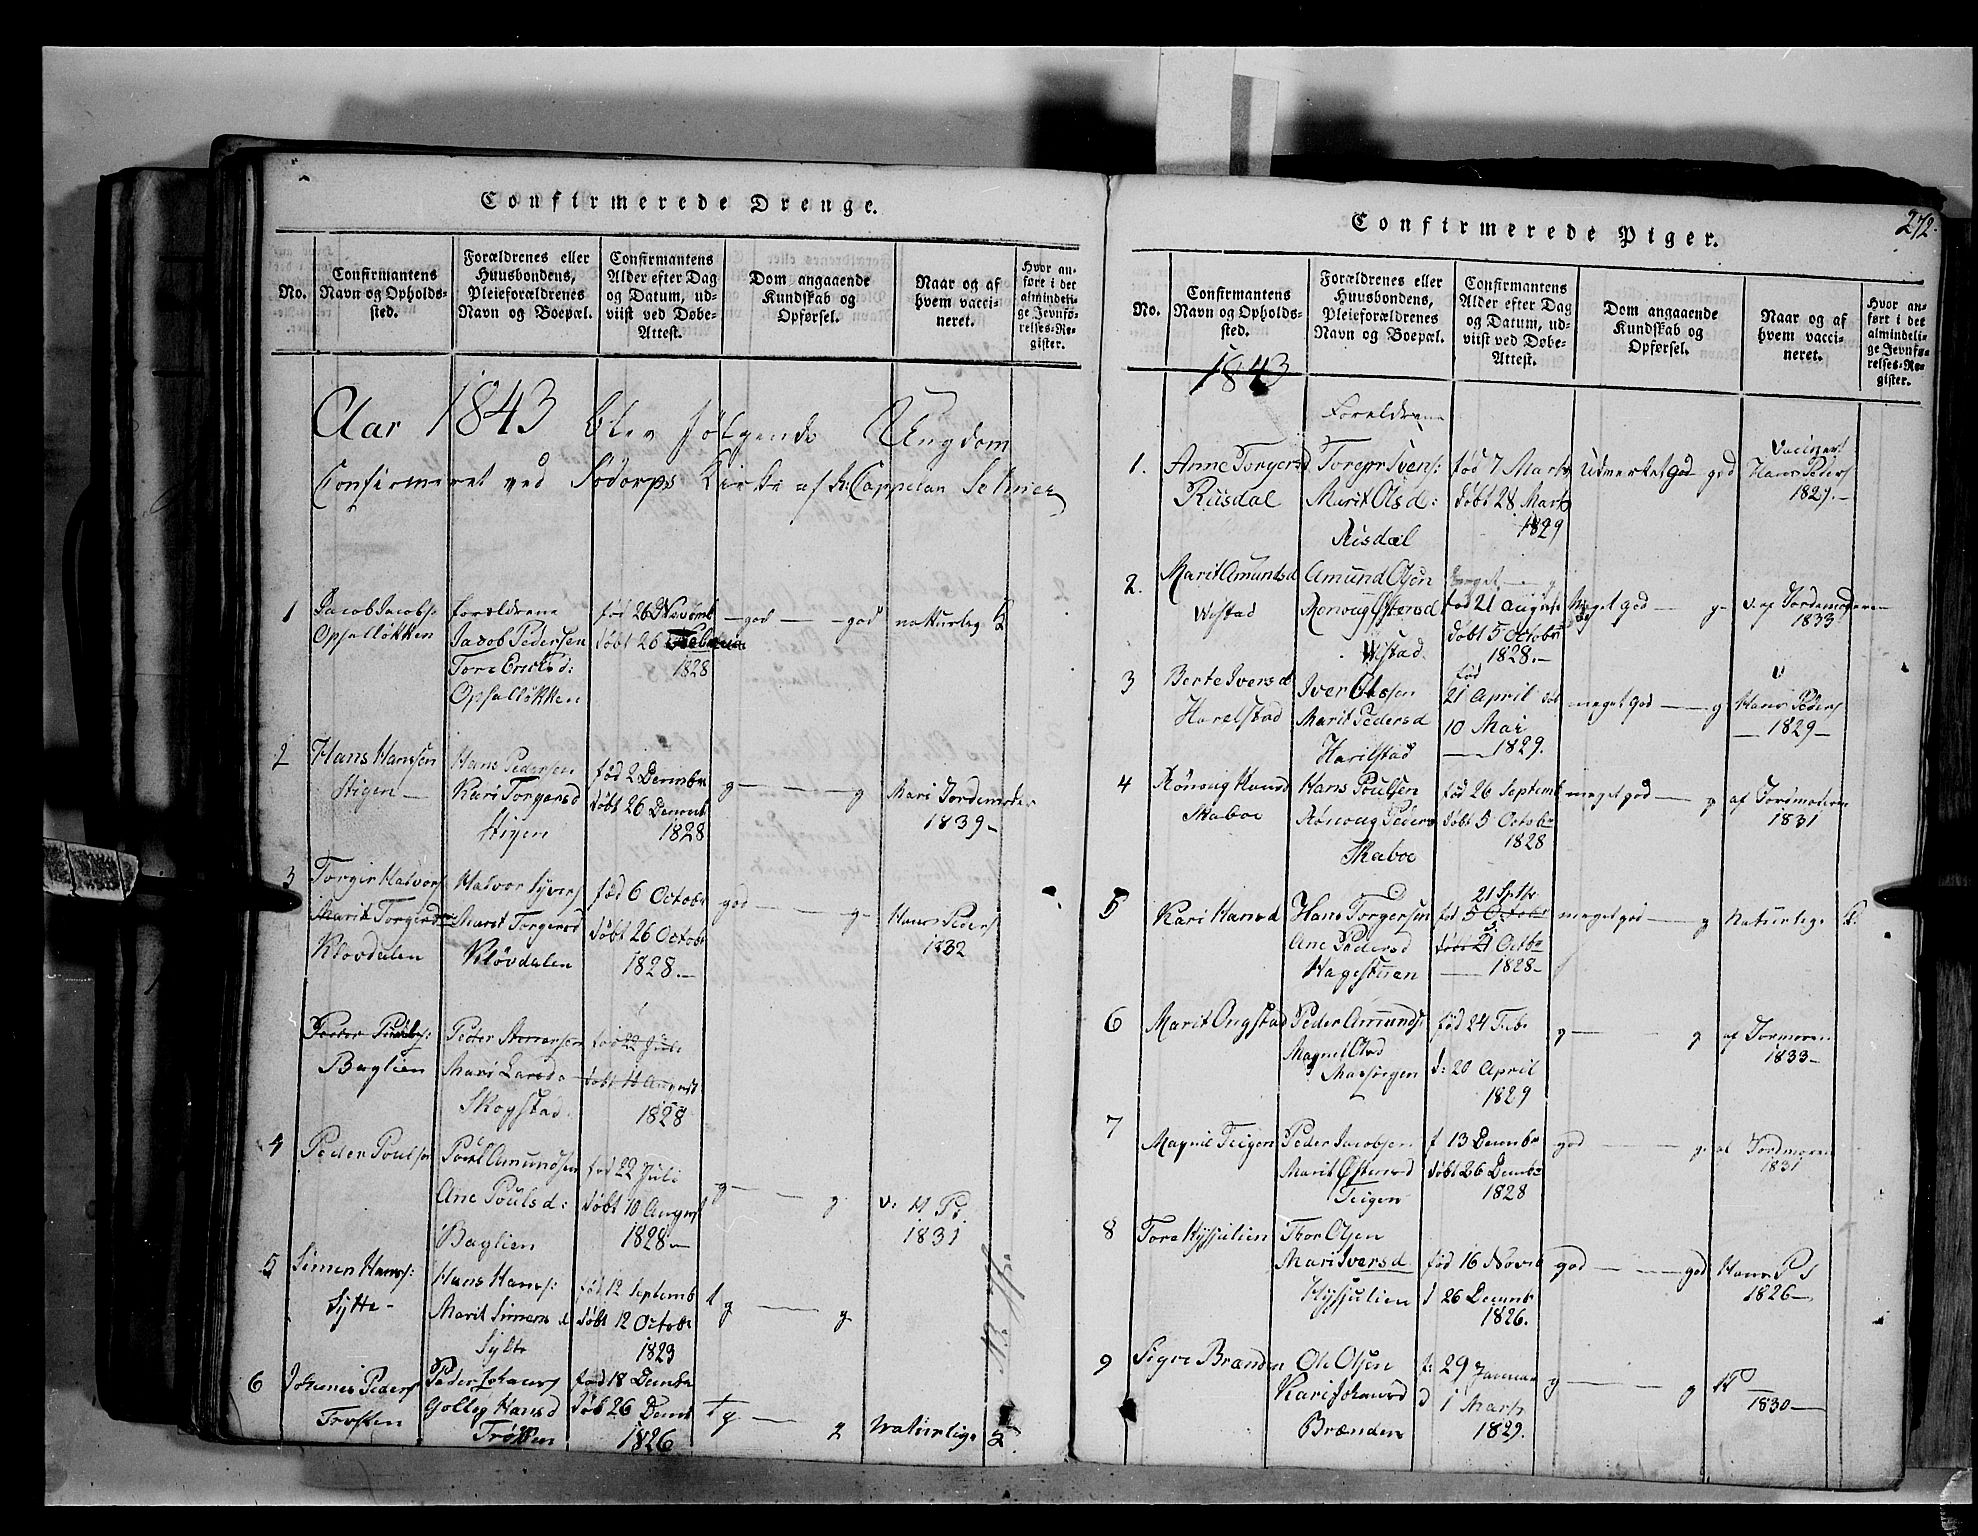 Confirmerede Drenge.
No.
Confirmantens Navn og Opholdssted.
Forældrenes eller Huusbondens, Pleieforældrenes Navn og Boepæl.
Confirmantens Alder efter Dag og Datum, udviist ved Døbe-Attest.
Dom angaaende Kundskab og Opførsel.
Naar og af hvem vaccineret.
Hvor anført i det almindelige Jevnførelses-Register.
Aar 1843 blev følgende Ungdom
Confirmeret ved Sødorps Kirke af Hr: Cappelan Selmer
1
Jacob Jacobs:
Opsalløkken
forældrene
Jacob Pedersen
Tore Ericksd:
Opsalløkken
fød 26
døbt 26
1828
god — god
natturleg
2
Hans Hansen
Stigen
Hans Pedersen
Kari Torgersd
Stigen
fød 2 Decembr
døbt 26 Decemb
1828
g — g
Mari Jordemoder
1839
3
Torger Halvors
Marit Torgersd
Kløvdalen
Halvor Syvers
Marit Torgersd
Kløvdalen
fød 6 Octobr
døbt 26 Octobr
1828
god — g
Hans Peders
1832
Baglien
Peder
Mari Larsd
Skogstad
fød 22 Juli
døbt August
1828
4
Peder Poulsen
Poul Amundsen
Ane Poulsd:
Baglien
fød 22 Juli
døbt 10 August
1828
g — g
v: H Ps
1831
5
Simen Hans:
Sylte
Hans Hans:
Marit Simensd
Sylte
fød 12 Septemb
døbt 12 Octobr
1823
g — g
6
Johanes Peders
Peder Johans
Golleg Hansd
fød 18 Decembr
døb 26 Decem
1826
g — g
naturlige
Confirmerede Piger.
272.
No.
Confirmantens Navn og Opholdssted.
Forældrenes eller Huusbondens, Pleieforældrenes Navn og Boepæl.
Confirmantens Alder efter Dag og Datum, udviist ved Døbe-Attest.
Dom angaaende Kundskab og Opførsel.
Naar og af hvem vaccineret.
Hvor anført i det almindelige Jevnførelses-Register.
1843
Foreldrene
1.
Anne Torgersd
Riisdal
Torger Svens:
Marit Olsd:
Riisdal
fød 7 Marts
døbt 28 Marts
1829
Udmerket god god
Hans Peders
1829
2.
Marit Amundsd
Wistad
Amund Olsen
Rønvaug Østensd
Wistad
fød 21 August
døbt 5 Octobr
1828
Meget god — g
v. af Jordemoderen
1833
3
Berte Iversd
Harelstad
Iver
Marit Pedersd
Harilstad
fød
21 April døb
10 Mai
1829.
meget god — g
v
Hans Peders
1829
4
Rønvug Hansd
Skaboe
Hans Poulsen
Rønvaug Peders
Skaboe
fød 26 Septemb
døbt 5 Octobr
1828
meget god — g
af Jordmoderen
1831
5
Kari Hansd
Hans Torgersen
Ane Pedersd
Hagestuen
21 Septbr
fød 5 Octobr
døbt 21 Octbr
1828
meget god — g
Naturlige
6
Marit Ongstad
Peder Amunds:
Magnil Olsd
fød 24 Feb
d: 20 April
1829
g — g
af Jormoren
1833
7
Magnil Teigen
Peder Jacobsen
Marit Østensd
Teigen
f 13 Decembr
døbt 26 Decembr
1828
god — g
af Jordmoren
1831
8
Thor Olsen
Mari Iversd
fød 16 Novb
d 26 Decemb
1826.
god — god
Hans P S
1826
9
Sigre Brænden
Ole Olsen
Kari Johansd
Brænden
f: 29 Januar
d 1 Marts
1829.
g — g
H P
1830